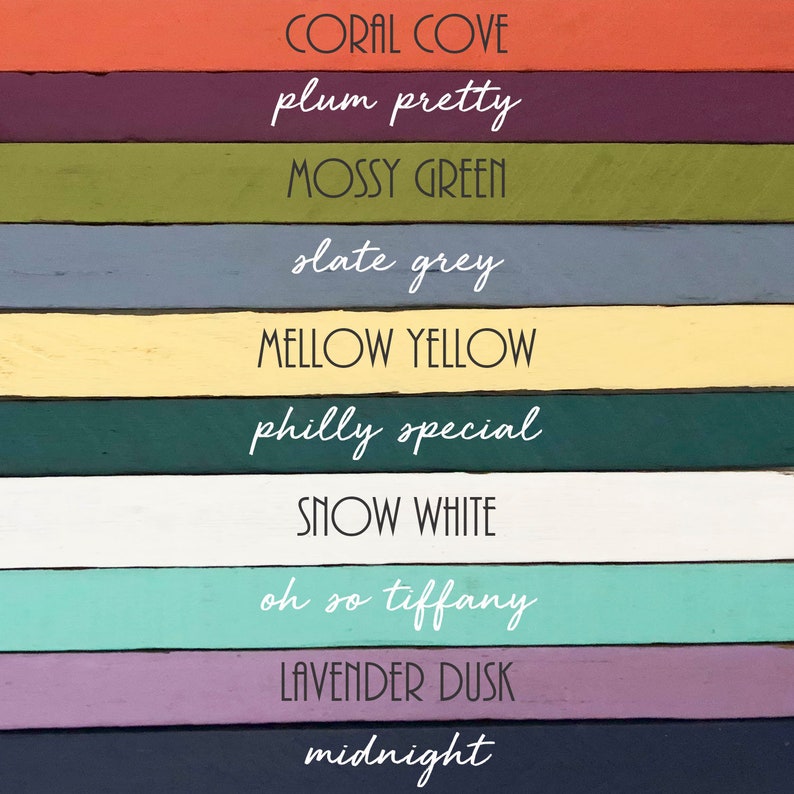 CORAL COVE
plum pretty
MOSSY GREEN
slate grey
MELLOW YELLOW
philly special
SNOW WHITE
oh so tiffany
LAVENDER DUSK
midnight